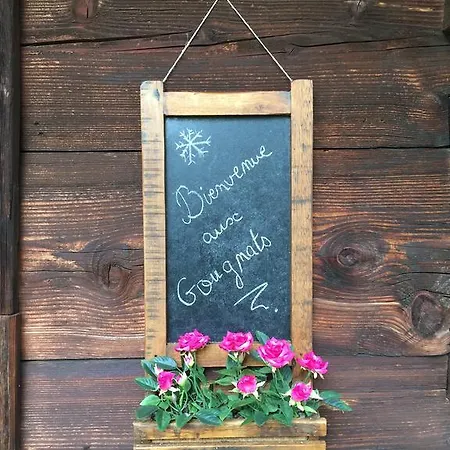 Bienvenue
aux
Gougnats